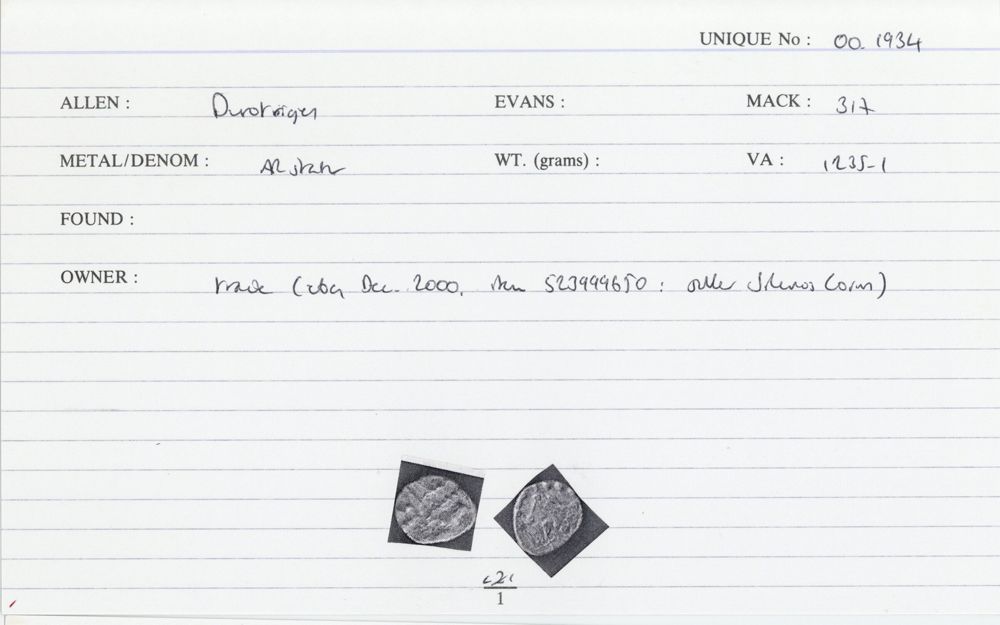 UNIQUE No : 00.1934
ALLEN : Durotriges EVANS : MACK : 317
METAL/DENOM : AR stater WT. (grams) : VA : 1235-1
FOUND :
OWNER : trade (eBay Dec. 2000, item 523999650 : seller Silenos Coins)
1